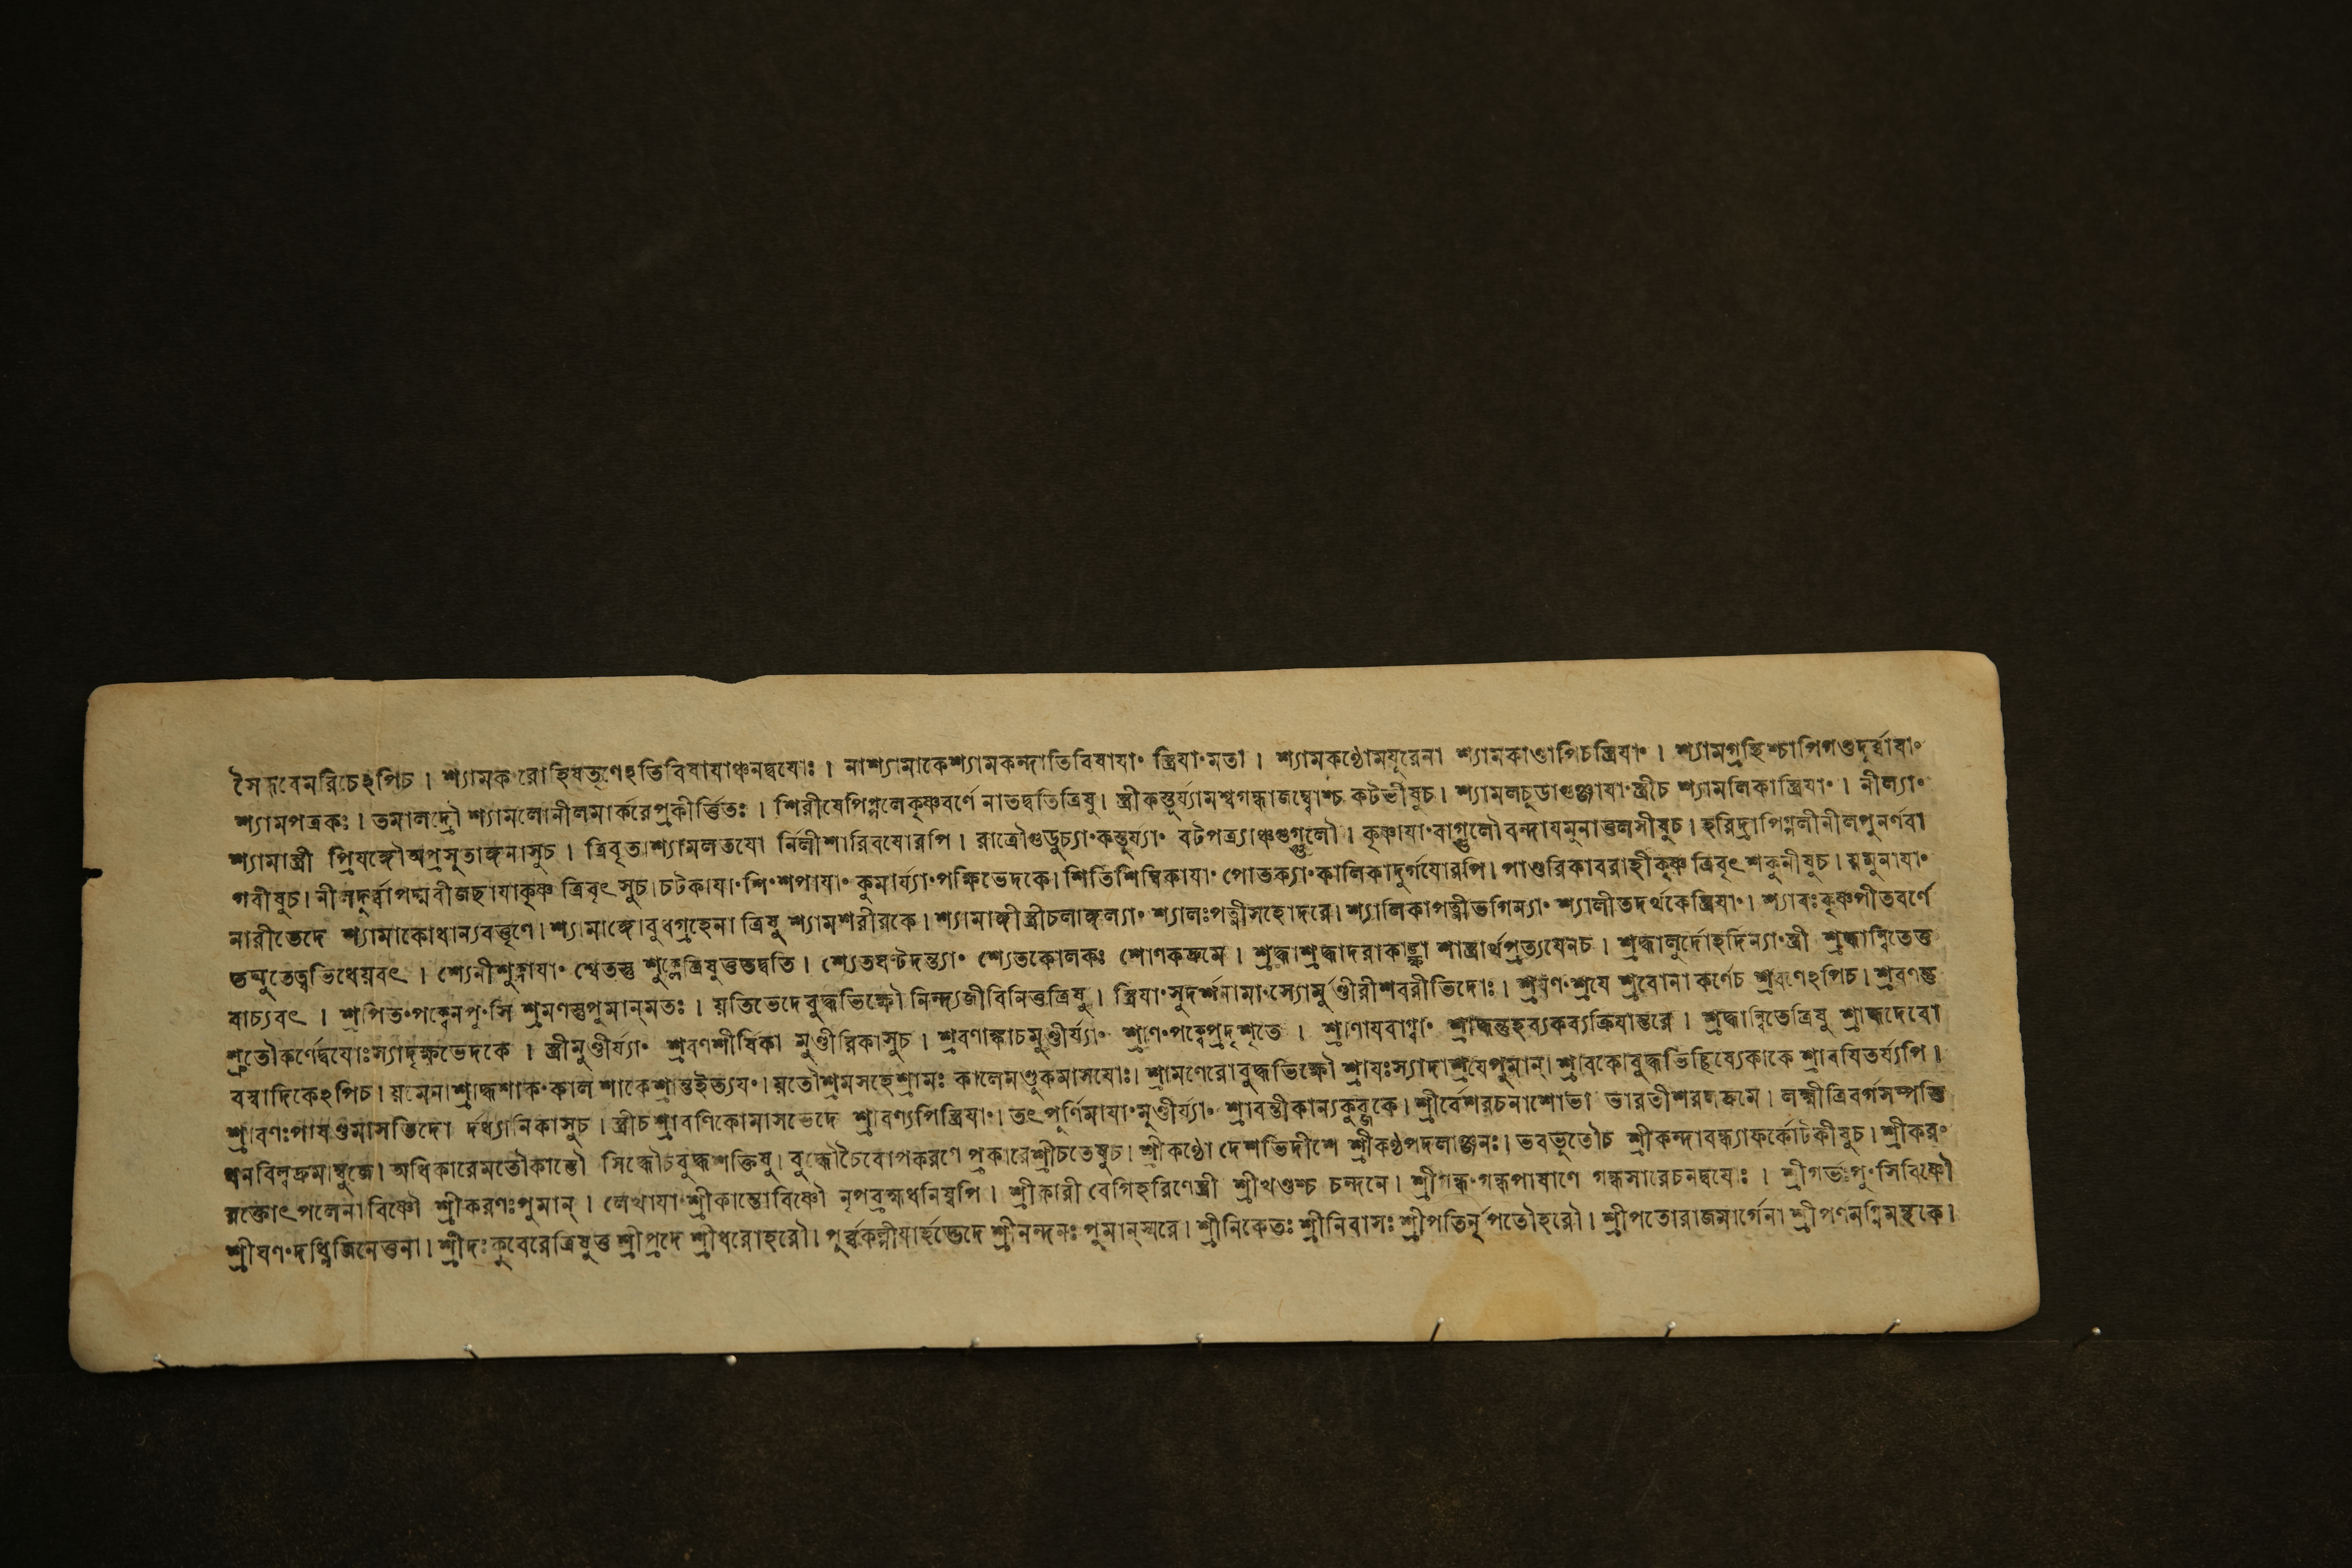 সৈন্ধবেমরিচেঽপিচ । শ্যামকং রোহিষতৃণেঽতিবিষাযাঞ্চনদ্বযোঃ । নাশ্যামাকেশ্যামকন্দাতিবিষাযাং স্ত্রিযাংমতা । শ্যামকণ্ঠোমযূরেনা শ্যামকাণ্ডাপিচস্ত্রিযাং । শ্যামগ্রন্থিশ্চাপিগণ্ডদূর্ব্বাযাং
শ্যামপত্রকঃ । তমালদ্রৌ শ্যামলোনীলমার্করেপ্রকীর্ত্তিতঃ । শিরীষেপিপ্পলেকৃষ্ণবর্ণে নাতদ্বতিত্রিষু । স্ত্রীকস্তূর্য্যামশ্বগন্ধাজম্ব্বোশ্চ কটভীষুচ । শ্যামলচূডাগুঞ্জাযাংস্ত্রীচ শ্যামলিকাস্ত্রিযাং । নীল্যাং
শ্যামাস্ত্রী প্রিযঙ্গৌঅপ্রসুতাঙ্গনাসুচ । ত্রিবৃতাশ্যামলতযো র্নিলীশারিবযোরপি । রাত্রৌগুডূচ্যাংকস্তূয্যাং বটপত্র্যাঞ্চগুগ্গুলৌ । কৃষ্ণাযাংবাগ্গুলৌবন্দাযমুনাতুলসীষুচ । হরিদ্রাপিপ্পলীনীলপুনর্ণবা
গবীষুচ । নীলদূর্ব্বাপদ্মবীজছাযাকৃষ্ণ ত্রিবৃৎসুচ । চটকাযাংশিংশপাযাং কুমার্য্যাংপক্ষিভেদকে । শিতিশিম্বিকাযাং পোতক্যাংকালিকাদুর্গযোরপি । পাণ্ডুরিকাবরাহীকৃষ্ণ ত্রিবৃৎশকুনীষুচ । য়মুনাযাং
নারীভেদে শ্যামাকোধান্যবত্তৃণে । শ্যামাঙ্গোবুধগ্রহেনা ত্রিষু শ্যামশরীরকে । শ্যামাঙ্গীস্ত্রীচলাঙ্গল্যাং শ্যালঃপত্নীসহোদরে । শ্যালিকাপত্নীভগিন্যাং শ্যালীতদর্থকেস্ত্রিযাং । শ্যাবঃকৃষ্ণপীতবর্ণে
তদ্যুতেত্বভিধেয়বৎ । শ্যেনীশুক্লাযাং শ্বেতস্তু শুক্লেত্রিষুতুতদ্বতি । শ্যেতঘণ্টদন্ত্যাং শ্যেতকোলকঃ শোণকদ্রুমে । শ্রদ্ধাশ্রদ্ধাদরাকাঙ্ক্ষা শাস্ত্রার্থপ্রত্যযেনচ । শ্রদ্ধালুর্দোহদিন্যাংস্ত্রী শ্রদ্ধান্বিতেতু
বাচ্যবৎ । শ্রপিতংপক্বেনপুংসি শ্রমণস্তুপুমান্‌মতঃ । য়তিভেদেবুদ্ধভিক্ষৌ নিন্দ্যজীবিনিতুত্রিষু । স্ত্রিযাংসুদর্শনামাংস্যোমুণ্ডীরীশবরীভিদোঃ । শ্রযণংশ্রযে শ্রবোনা কর্ণেচ শ্রবণেঽপিচ । শ্রবণস্তু
শ্রুতৌকর্ণেদ্বযোঃস্যাদৃক্ষভেদকে । স্ত্রীমুণ্ডীর্য্যাং শ্রবণশীর্ষিকা মুণ্ডীরিকাসুচ । শ্রবণাঙ্কাচমুণ্ডীর্য্যাং শ্রাণংপক্বেপ্রদৃশ্যতে । শ্রাণাযবাগ্বাং শ্রাদ্ধন্তুহব্যকব্যক্রিযান্তরে । শ্রদ্ধান্বিতেত্রিষু শ্রাদ্ধদেবো
বস্বাদিকেঽপিচ । য়মেনাশ্রাদ্ধশাকংকাল শাকেশ্রান্তইত্যযং । য়তৌশ্রমসহেশ্রামঃ কালেমণ্ডুকমাসযোঃ । শ্রামণেরোবুদ্ধভিক্ষৌ শ্রাযঃস্যাদাশ্রযেপুমান্ । শ্রাবকোবুদ্ধভিচ্ছিষ্যেকাকে শ্রাবযিতর্য্যপি ।
শ্রাবণঃপাষণ্ডমাসভিদো র্দধ্যানিকাসুচ । স্ত্রীচশ্রাবণিকোমাসভেদে শ্রাবণ্যপিস্ত্রিযাং । তৎপূর্ণিমাযাংমুণ্ডীর্য্যাং শ্রাবন্তীকান্যকুব্জকে । শ্রীর্বেশরচনাশোভা ভারতীশরলদ্রুমে । লক্ষ্মীত্রিবর্গসম্পত্তি
ধনবিল্বদ্রুমাম্বুজে । অধিকারেমতৌকান্তৌ সিদ্ধৌচবুদ্ধশক্তিষু । বুদ্ধৌচৈবোপকরণে প্রকারেশ্রীচতেষুচ । শ্রীকণ্ঠো দেশভিদীশে শ্রীকণ্ঠপদলাঞ্ছনঃ । ভবভূতৌচ শ্রীকন্দাবন্ধ্যাকর্কোটকীষুচ । শ্রীকরং
রক্তোৎপলেনাবিষ্ণৌ শ্রীকরণঃপুমান্ । লেখাযাংশ্রীকান্তোবিষ্ণৌ নৃপব্রহ্মধনিষ্বপি । শ্রীকারী বেগিহরিণেস্ত্রী শ্রীখণ্ডশ্চ চন্দনে । শ্রীগন্ধংগন্ধপাষাণে গন্ধসারেচনদ্বযোঃ । শ্রীগর্ভঃপুংসিবিষ্ণৌ
শ্রীঘণংদধ্নিজিনেতুনা । শ্রীদঃকুবেরেত্রিষুতু শ্রীপ্রদে শ্রীধরোহরৌ । পূর্ব্বকল্পীযার্হদ্ভেদে শ্রীনন্দনঃ পুমান্‌স্মরে । শ্রীনিকেতঃ শ্রীনিবাসঃ শ্রীপতির্নৃপতৌহরৌ । শ্রীপতোরাজমার্গেনা শ্রীপর্ণমগ্নিমন্থকে ।